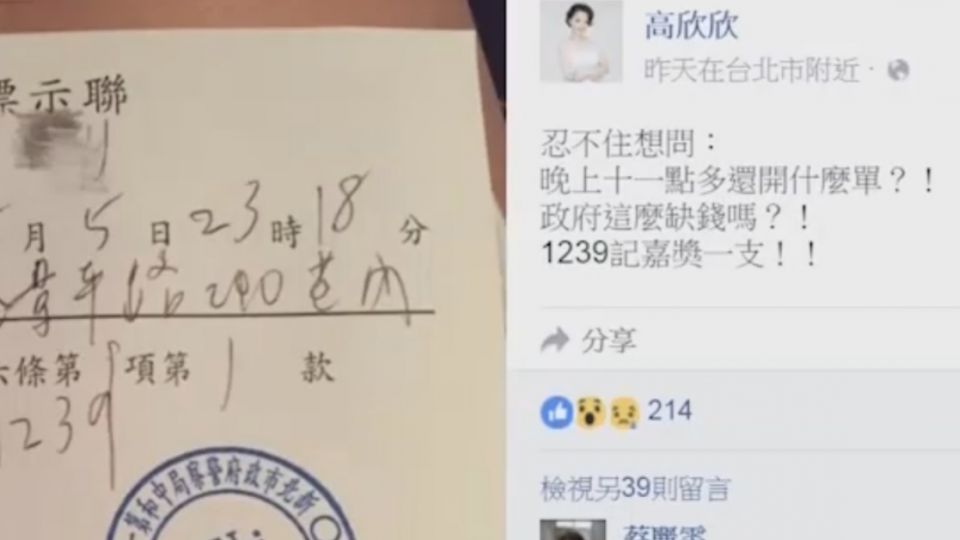 標示聯
月 5 日 23 時 18 分
290巷內
條第 1 項第 1 款
1239
新北市政府警察局中和第一
高欣欣
昨天在台北市附近 ·
忍不住想問：
晚上十一點多還開什麼單？！
政府這麼缺錢嗎？！
1239記嘉獎一支！！
分享
214
檢視另39則留言